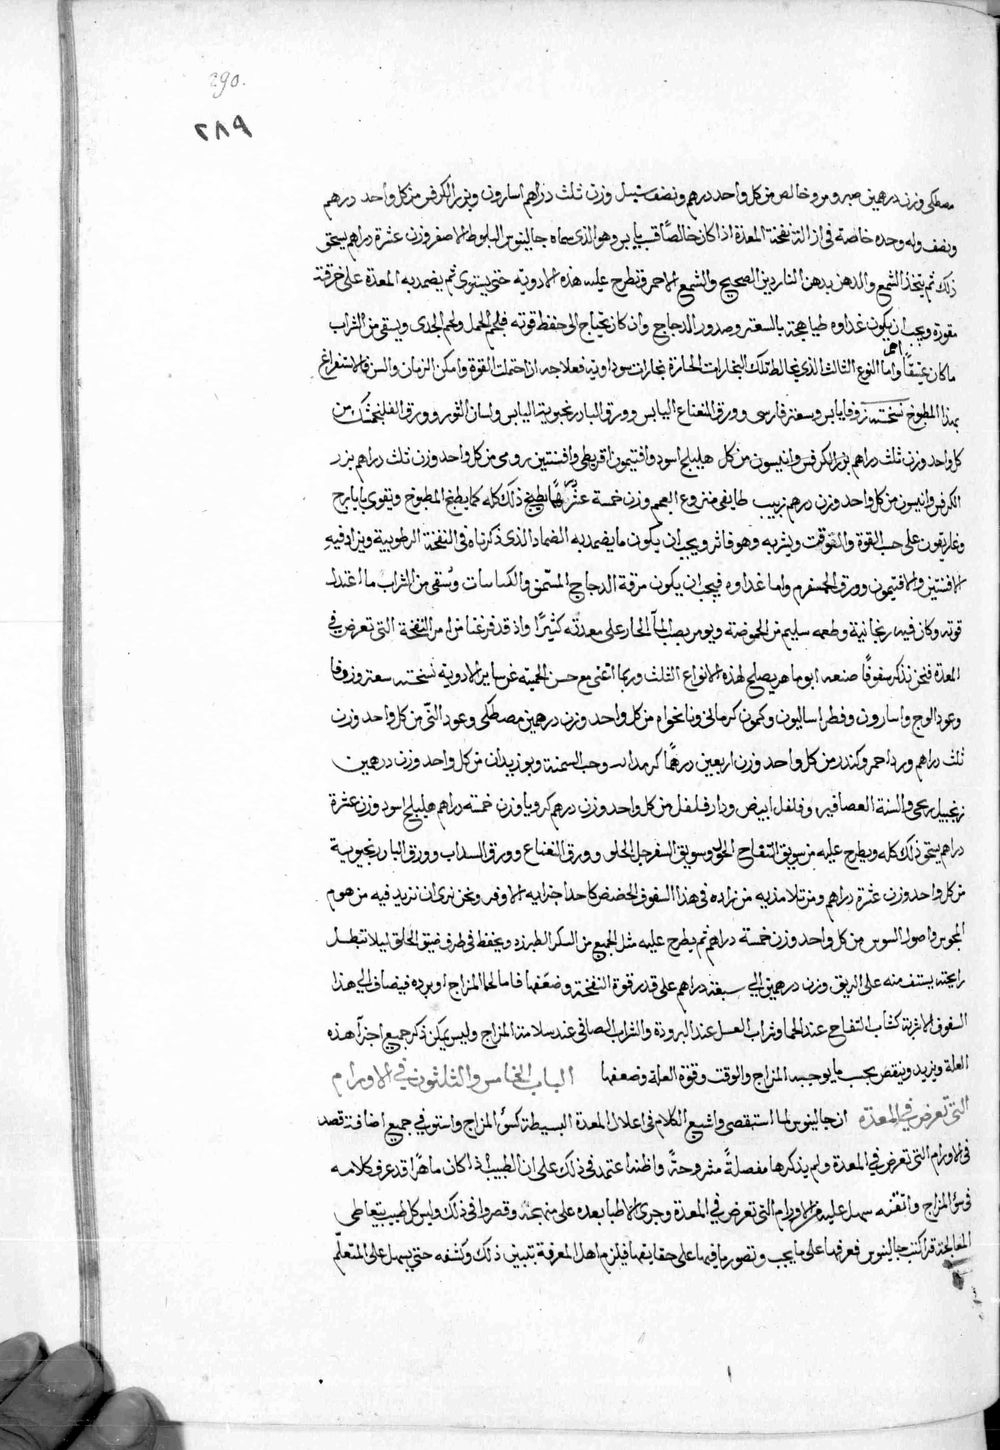 290.
٢٨٩
مصطكى وزن درهمين صبر ومر وخالص من كل واحد درهم ونصف سنبل وزن ثلث دراهم اسارون وبزر الكرفس من كل واحد درهم
ونصف وله وحده خاصة في ازالة نفخة المعدة اذا كان خالصًا قسب يابس وهو الذي سماه جالينوس البلوط الاصفر وزن عشرة دراهم يسحق
ذلك ثم يتخذ الشمع والدهن بدهن الناردين الصحيح والشمع الاحمر وتطرح عليه هذه الادوية حتى يستوي ثم يضمد به المعدة على خرقة
مقورة ويجب ان يكون غداوه طياهجة بالسعتر وصدور الدجاج وان كان يحتاج الى حفظ قوته فلحم الحمل ولحم الجدى ويسقى من الشراب
ما كان عتيقًا احمر واما النوع الثالث الذي يخالط تلك البخارات الحارة بخارات سوداوية فعلاجه ان احتملت القوة وامكن الزمان والسن فالاستفراغ
بهذا المطبوخ نسخته زوفا يابس وسعتر فارسى وورق النعناع اليابس وورق البادرنجبوية اليابس ولسان الثور وورق الفلنجمشك من
كل واحد وزن ثلث دراهم بزر الكرفس وانيسون من كل هليلج اسود وافتيمون اقريطى وافسنتين رومى من كل واحد وزن ثلث دراهم بزر
الكرفس وانيسون من كل واحد وزن درهم زبيب طايفى منزوع العجم وزن خمسة عشر درهمًا يطبخ ذلك كله كما يطبخ المطبوخ وتقوى بايارج
وغاريقون على حسب القوة والوقت ويشربه وهو فاتر ويجب ان يكون ما يضمد به الضماد الذي ذكرناه في النفخة الرطوبية ويزاد فيه
الافسنتين والافتيمون وورق الحمسفرم واما غداوه فيجب ان يكون مرقة الدجاج المسمن والكباسات ويُسقى من الشراب ما اعتدل
قوته وكان فيه ريحانية وطعمه سليم من الحموضة ويومر بصب المآ الحار على معدته كثيرًا واذ قد فرغنا من امر النفخة التي تعرض في
المعدة فنحن نذكر سفوفًا صنعه ابو ماهر يصلح لهذه الانواع الثلث وربما اغنى مع حسن الحمية عن ساير الادوية نسخته سعتر وزوفا
وعود الوج واسارون وفطراساليون وكمون كرمانى ونانخواه من كل واحد وزن درهمين مصطكى وعود النى من كل واحد وزن
ثلث دراهم ورد احمر وكندر من كل واحد وزن اربعين درهمًا كرمدانه وحب السمنة وبوزيدان من كل واحد وزن درهمين
زنجبيل ربحى والسنة العصافير وفلفل ابيض ودار فلفل من كل واحد وزن درهم كرويا وزن خمسة دراهم هليلج اسود وزن عشرة
دراهم يسحق ذلك كله ويطرح عليه من سويق التفاح الحلو وسويق السفرجل الحلو وورق النعناع وورق السداب وورق البادرنجبوية
من كل واحد وزن عشرة دراهم ومن تلامذيه من زاده في هذا السفوف الحضض كاحد اجزايه الاوفر ونحن نرى ان نزيد فيه من هوم
المجوس واصول السوس من كل واحد وزن خمسة دراهم ثم يطرح عليه مثل الجميع من السكر الطبرزد ويحفظ في ظرف ضيق الحلق ليلا تبطل
رايحته يستف منه على الريق وزن درهمين الي سبعة دراهم على قدر قوة النفخة وضعفها فاما الحار المزاج او برده فيضاف الي هذا
السفوف الاشربة كشراب التفاح عند الحما وشراب العسل عند البرودة والشراب الصافى عند سلامة المزاج وليس يمكن ذكر جميع اجزآ هذه
العلة ويزيد وينقص بحسب ما يوجبه المزاج والوقت وقوة العلة وضعفها الباب الخامس والثلثون في الاورام
التى تعرض في المعدة ان جالينوس لما استقصى واشبع الكلام في اعلال المعدة البسيطة كسؤ المزاج واستوفى جميع اضافته قصد
في الاورام التى تعرض في المعدة ولم يذكرها مفصلةً مشروحةً واظنه اعتمد في ذلك على ان الطبيب اذا كان ماهرًا قد عرف كلامه
في سؤ المزاج واتقنه سهل عليه مر الاورام التى تعرض في المعدة وجرى الاطبا بعده على منهجه وقصروا في ذلك وليس كل طبيب يتعاطى
المعالجة قد اكتب جالينوس فعرفها على ما يجب وتصور ما فيها على حقايقها فيلزم اهل المعرفة تبيين ذلك وكشفه حتى يسهل على المتعلم